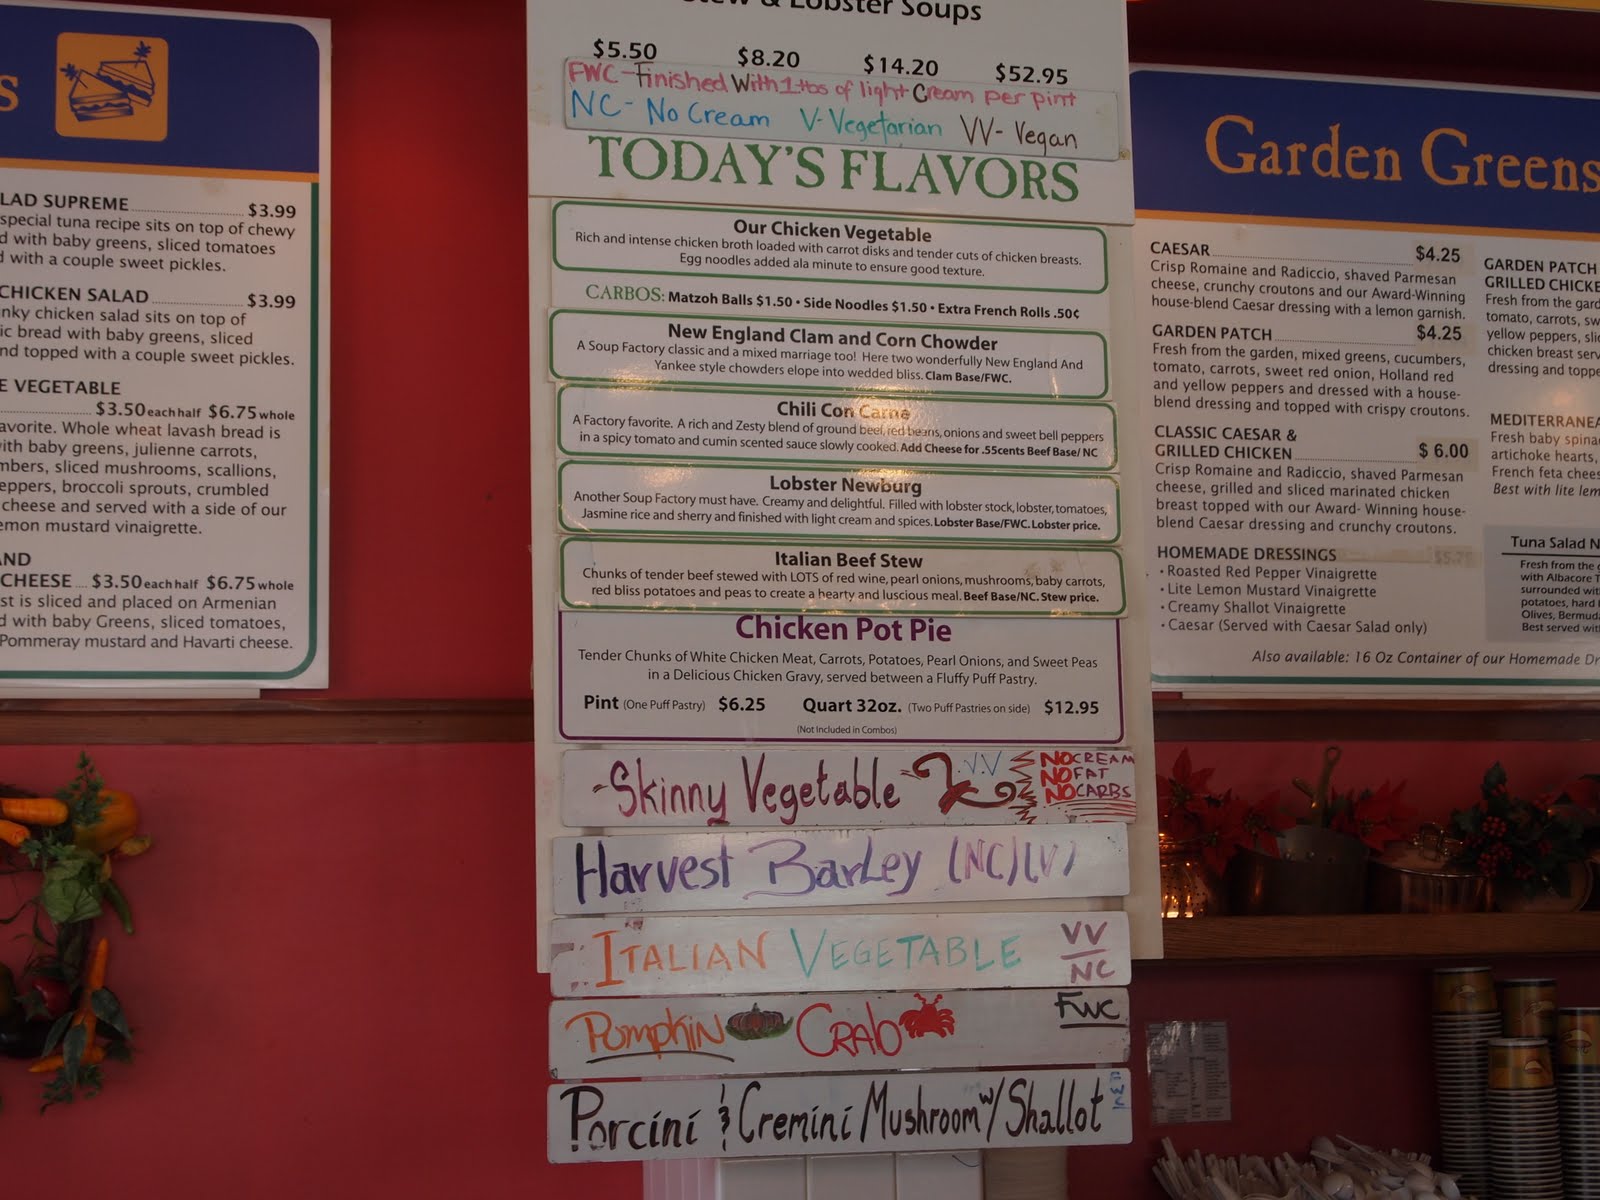 s
LAD SUPREME $3.99
special tuna recipe sits on top of chewy
d with baby greens, sliced tomatoes
d with a couple sweet pickles.
CHICKEN SALAD $3.99
nky chicken salad sits on top of
ic bread with baby greens, sliced
nd topped with a couple sweet pickles.
E VEGETABLE
$3.50 each half $6.75 whole
avorite. Whole wheat lavash bread is
with baby greens, julienne carrots,
mbers, sliced mushrooms, scallions,
eppers, broccoli sprouts, crumbled
cheese and served with a side of our
emon mustard vinaigrette.
AND
CHEESE $3.50 each half $6.75 whole
st is sliced and placed on Armenian
d with baby Greens, sliced tomatoes,
Pommeray mustard and Havarti cheese.
Stew & Lobster Soups
$5.50 $8.20 $14.20 $52.95
FWC-Finished With 1 tbs of light Cream per pint
NC- No Cream V-Vegetarian VV- Vegan
TODAY'S FLAVORS
Our Chicken Vegetable
Rich and intense chicken broth loaded with carrot disks and tender cuts of chicken breasts.
Egg noodles added ala minute to ensure good texture.
CARBOS: Matzoh Balls $1.50 • Side Noodles $1.50 • Extra French Rolls .50¢
New England Clam and Corn Chowder
A Soup Factory classic and a mixed marriage too! Here two wonderfully New England And
Yankee style chowders elope into wedded bliss. Clam Base/FWC.
Chili Con Carne
A Factory favorite. A rich and Zesty blend of ground beef, red beans, onions and sweet bell peppers
in a spicy tomato and cumin scented sauce slowly cooked. Add Cheese for .55cents Beef Base/ NC
Lobster Newburg
Another Soup Factory must have. Creamy and delightful. Filled with lobster stock, lobster, tomatoes,
Jasmine rice and sherry and finished with light cream and spices. Lobster Base/FWC. Lobster price.
Italian Beef Stew
Chunks of tender beef stewed with LOTS of red wine, pearl onions, mushrooms, baby carrots,
red bliss potatoes and peas to create a hearty and luscious meal. Beef Base/NC. Stew price.
Chicken Pot Pie
Tender Chunks of White Chicken Meat, Carrots, Potatoes, Pearl Onions, and Sweet Peas
in a Delicious Chicken Gravy, served between a Fluffy Puff Pastry.
Pint (One Puff Pastry) $6.25 Quart 32oz. (Two Puff Pastries on side) $12.95
(Not Included in Combos)
-Skinny Vegetable V.V
NO CREAM
NO FAT
NO CARBS
Harvest Barley (NC)(V)
ITALIAN VEGETABLE VV
NC
PUMPKIN CRAB FWC
Porcini & Cremini Mushroom w/ Shallot
Garden Greens
CAESAR $4.25
Crisp Romaine and Radiccio, shaved Parmesan
cheese, crunchy croutons and our Award-Winning
house-blend Caesar dressing with a lemon garnish.
GARDEN PATCH $4.25
Fresh from the garden, mixed greens, cucumbers,
tomato, carrots, sweet red onion, Holland red
and yellow peppers and dressed with a house-
blend dressing and topped with crispy croutons.
CLASSIC CAESAR &
GRILLED CHICKEN $ 6.00
Crisp Romaine and Radiccio, shaved Parmesan
cheese, grilled and sliced marinated chicken
breast topped with our Award- Winning house-
blend Caesar dressing and crunchy croutons.
HOMEMADE DRESSINGS $5.75
• Roasted Red Pepper Vinaigrette
• Lite Lemon Mustard Vinaigrette
• Creamy Shallot Vinaigrette
• Caesar (Served with Caesar Salad only)
Also available: 16 Oz Container of our Homemade Dr
GARDEN PATCH
GRILLED CHICKE
Fresh from the gard
tomato, carrots, sw
yellow peppers, slic
chicken breast serv
dressing and toppe
MEDITERRANEA
Fresh baby spina
artichoke hearts,
French feta chees
Best with lite lem
Tuna Salad N
Fresh from the g
with Albacore T
surrounded with
potatoes, hard b
Olives, Bermuda
Best served with